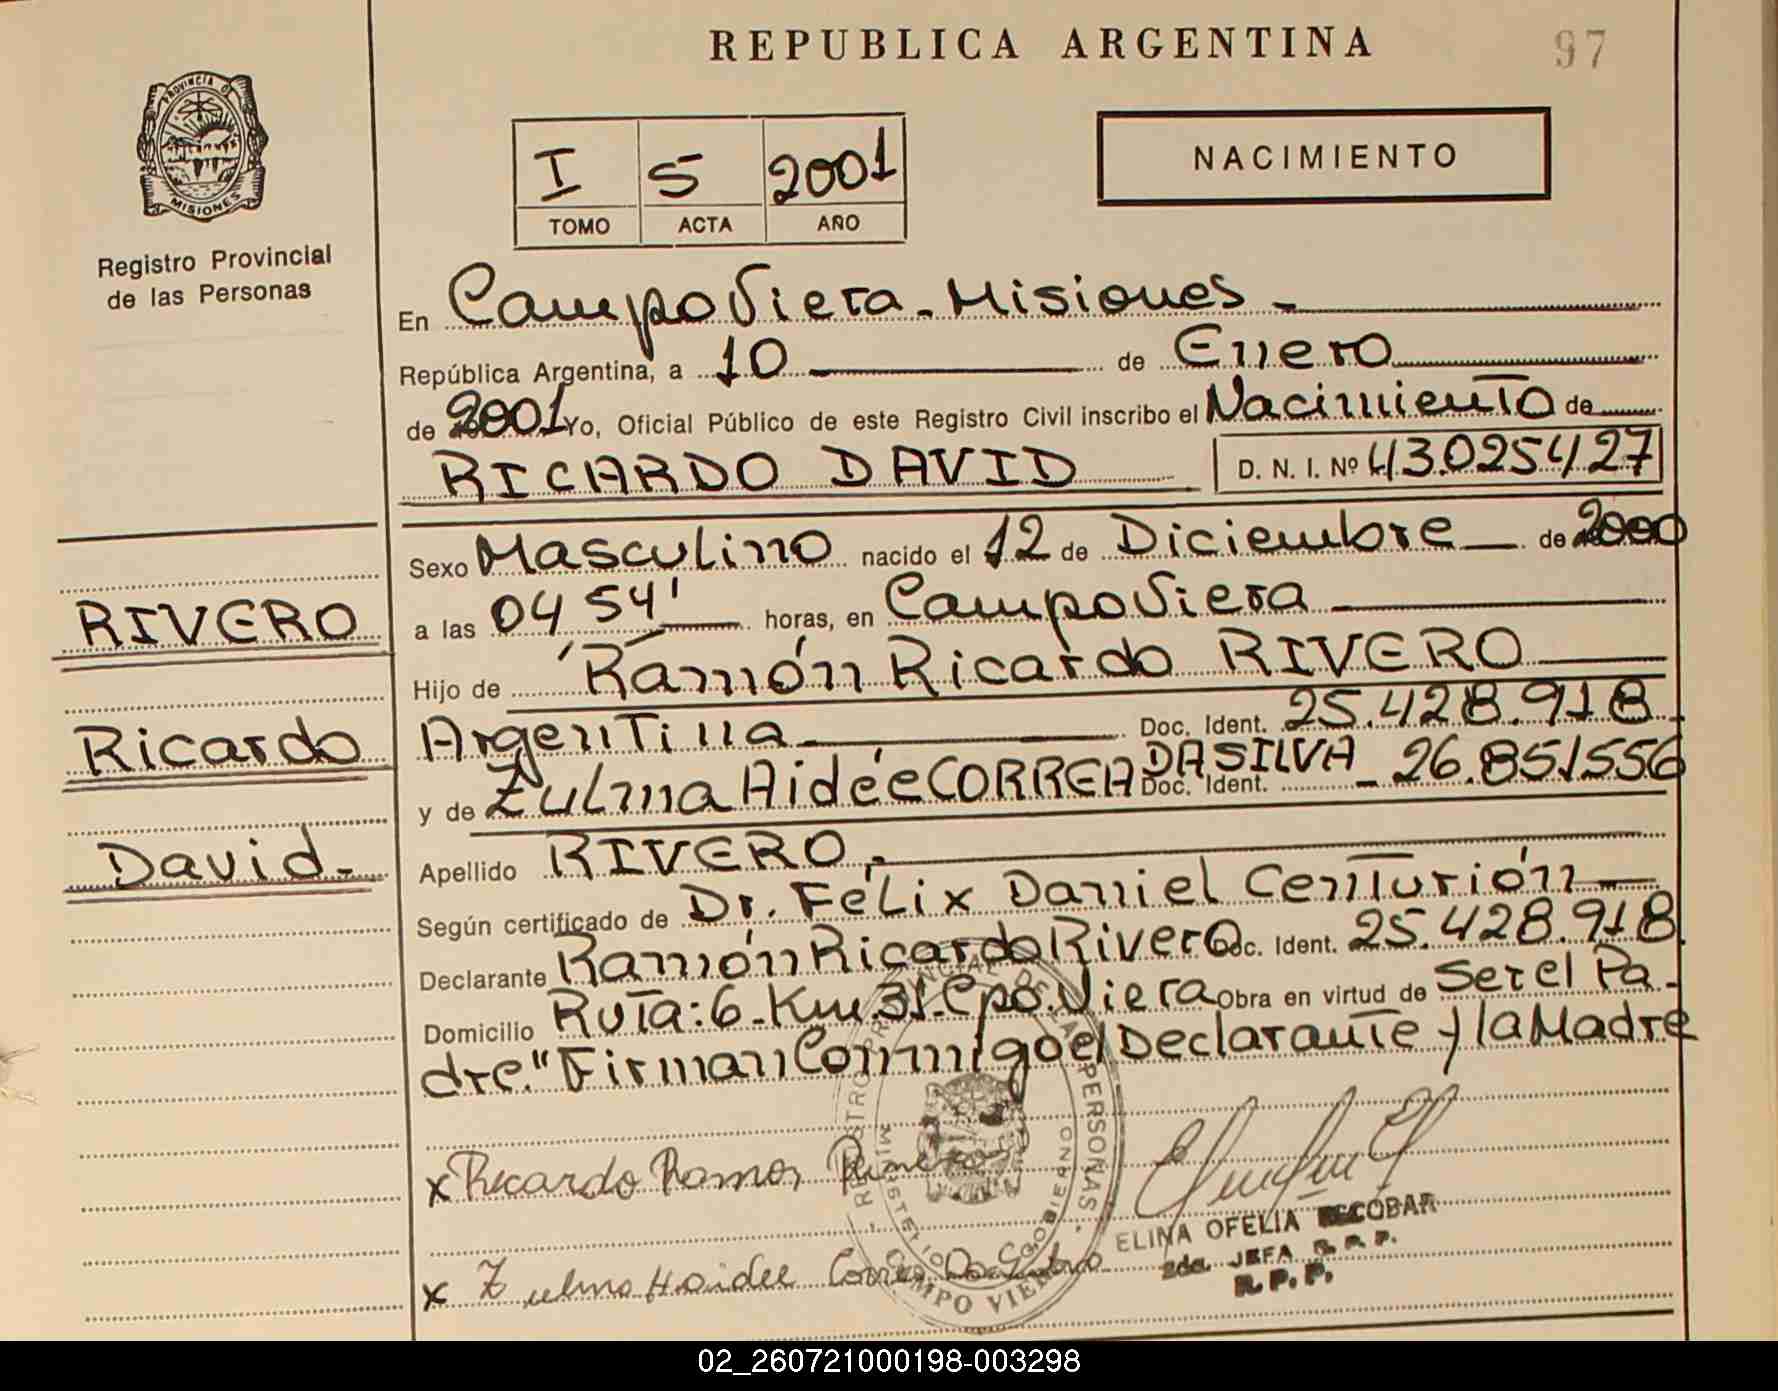 REPUBLICA ARGENTINA
97
PROVINCIA DE
MISIONES
Registro Provincial
de las Personas
I 5 2001
TOMO ACTA AÑO
NACIMIENTO
En Campo Viera - Misiones -
República Argentina, a 10 de Enero
de 2001 Yo, Oficial Público de este Registro Civil inscribo el Nacimiento de
RICARDO DAVID D. N. I. Nº 43.025427
Sexo Masculino nacido el 12 de Diciembre de 2000
a las 04 54' horas, en Campo Viera
Hijo de Ramón Ricardo RIVERO
Argentina Doc. Ident. 25.428.918
y de Zulma Aidée CORREA DA SILVA Doc. Ident. - 26.851.556
Apellido RIVERO.-
Según certificado de Dr. Félix Daniel Centurión
Declarante Ramón Ricardo Rivero Doc. Ident. 25.428.918
Domicilio Ruta: 6 - Km. 31 - Cpo. Viera Obra en virtud de Ser el Pa-
dre." Firman Conmigo el Declarante y la Madre
RIVERO
Ricardo
David -
x Ricardo Ramon
x Zulma Haidee Correa Da
REGISTRO PROVINCIAL DE LAS PERSONAS -
MINISTERIO GOBIERNO
CAMPO VIERA
ELINA OFELIA ESCOBAR
2da. JEFA R. P. P.
R. P. P.
02_260721000198-003298